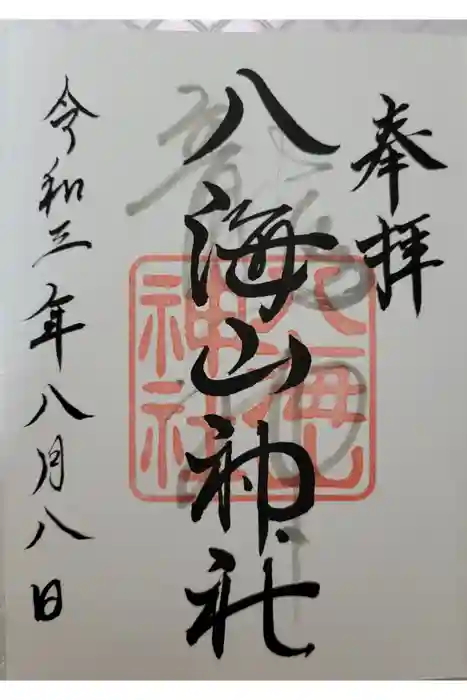 奉拝
八海山神社
八海山
神社
龍神
令和三年八月八日